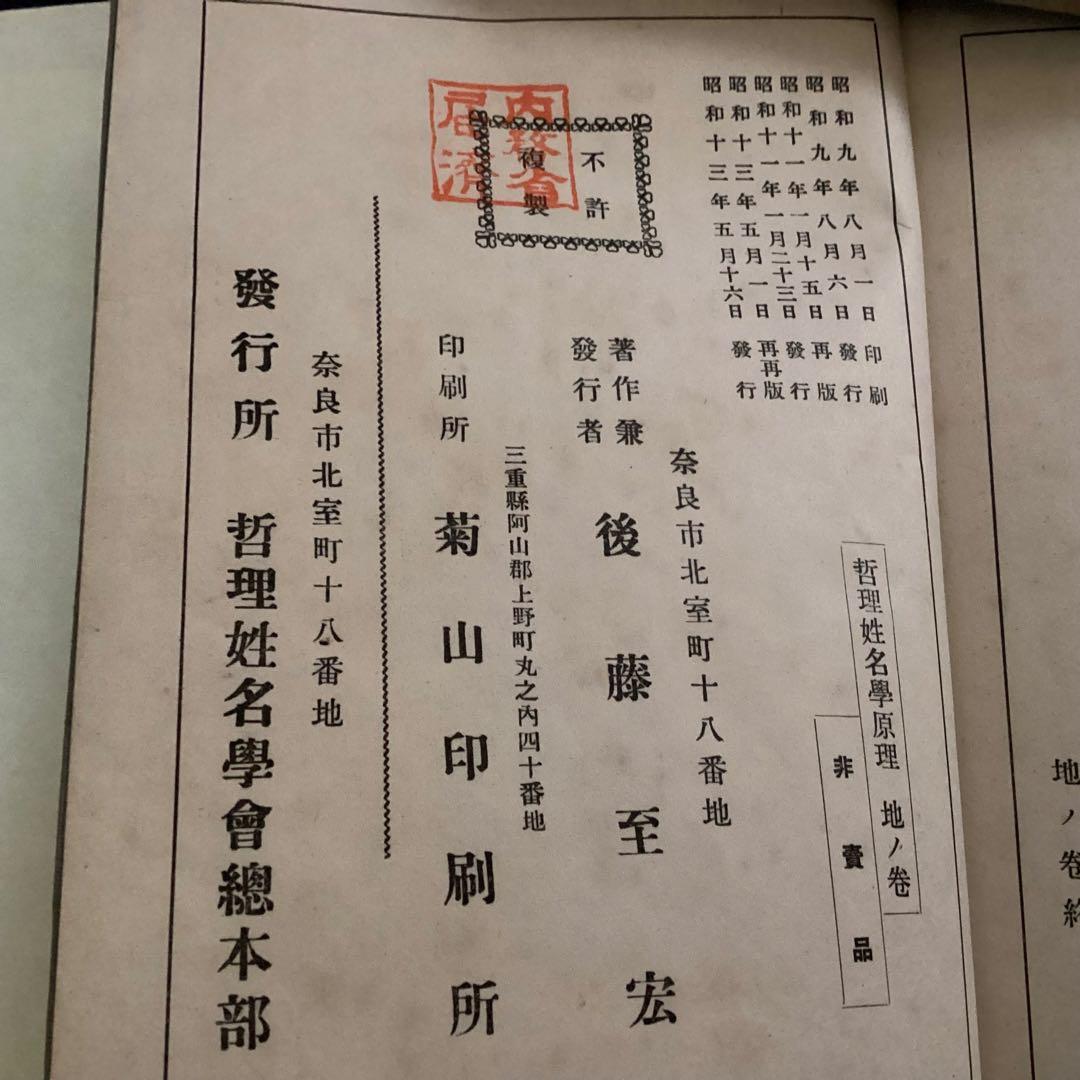 昭和九年八月一日印刷
昭和九年八月六日發行
昭和十一年一月十五日再版
昭和十一年一月二十三日發行
昭和十三年五月一日再再版
昭和十三年五月十六日發行
哲理姓名學原理 地ノ卷
非賣品
不許
複製
內務省
届濟
奈良市北室町十八番地
著作兼
發行者
後藤至宏
三重縣阿山郡上野町丸之內四十番地
印刷所 菊山印刷所
奈良市北室町十八番地
發行所 哲理姓名學會總本部
地ノ卷終